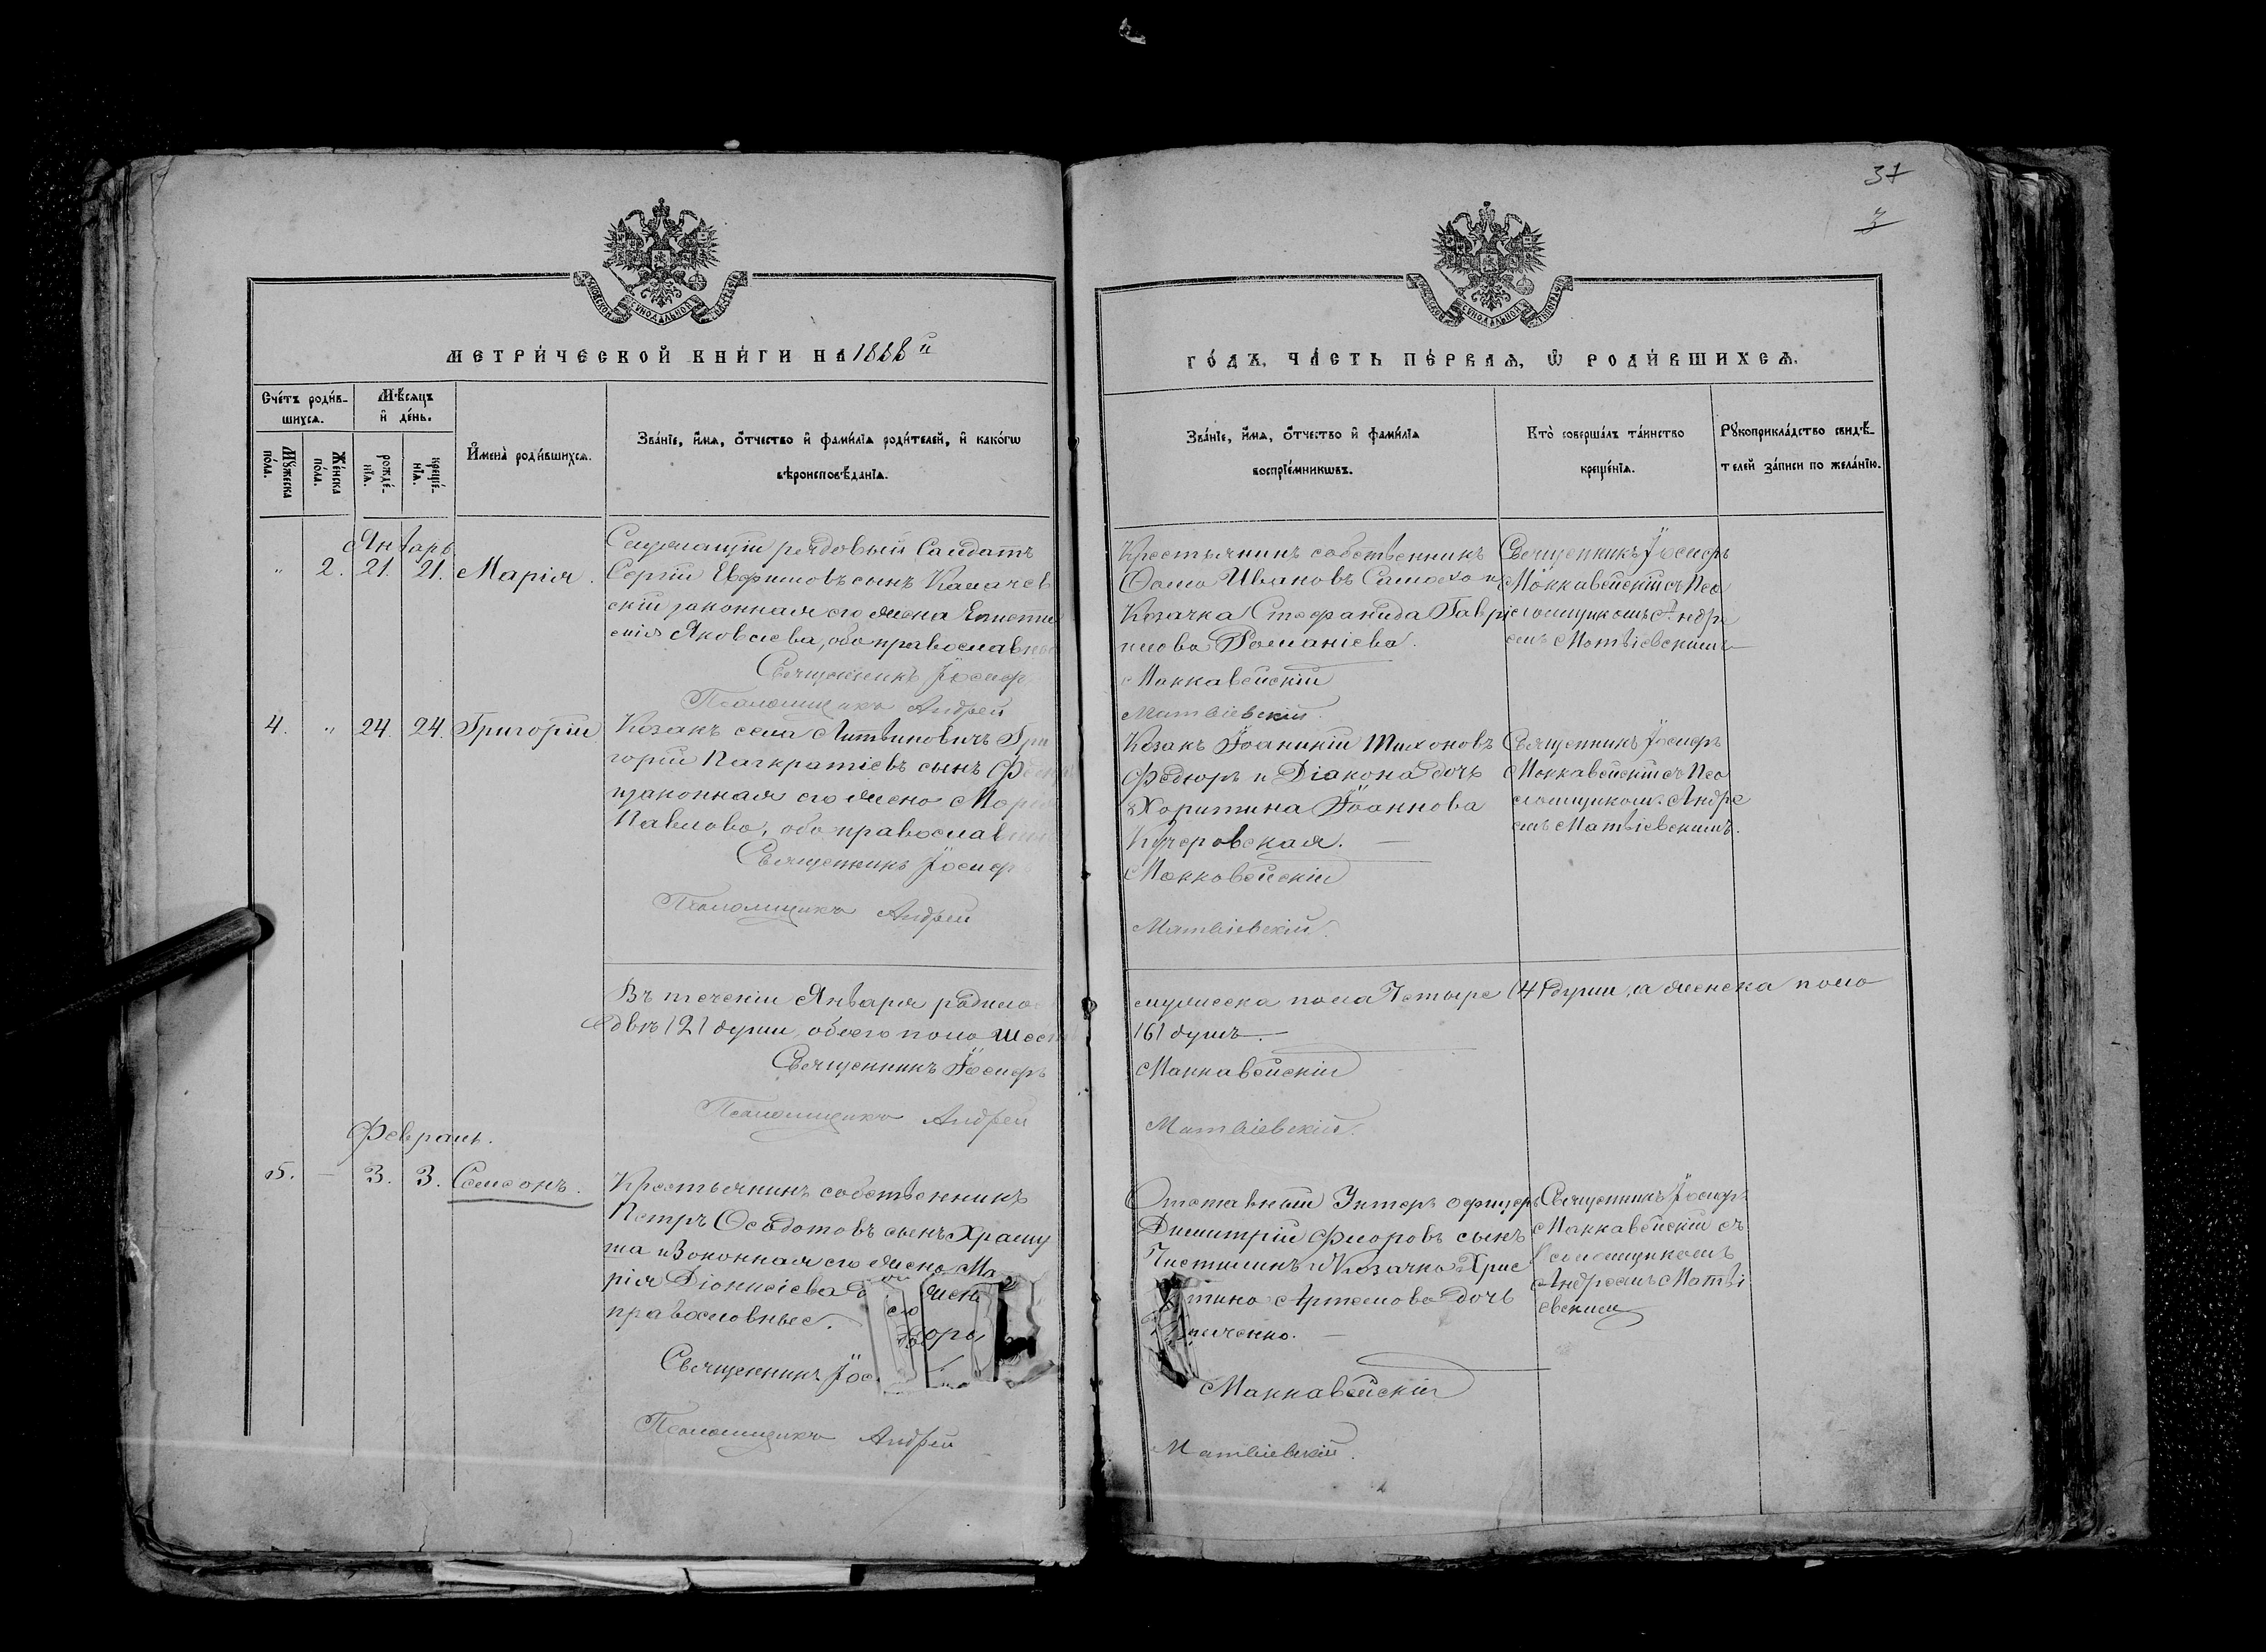 37
3
КІЕВСКОЙ СУНОДАЛЬНОЙ
СУНОДАЛЬНОЙ ТИПОГРАФІИ
МЕТРИ́ЧЕСКОЙ КНИ́ГИ НА 1888 й
ГО́ДЪ, ЧА́СТЬ ПЕ́РВАѦ, Ѿ РОДИ́ВШИХСѦ.
Сче́тъ роди́в-
шихсѧ.
Мѣ́сяцъ
и҆ де́нь.
Мꙋ́жеска по́ла.
Же́нска по́ла.
рожде́-нїѧ.
креще́-нїѧ.
И҆мена̀ роди́вшихсѧ.
Зва́нїе, и҆́мѧ, ѻ҆́тчество и҆ фами́лїѧ роди́телей, и҆ како́гѡ
вѣроисповѣ́данїѧ.
Зва́нїе, и҆́мѧ, ѻ҆́тчество и҆ фами́лїѧ
воспрїе́мникѡвъ.
Кто̀ соверша́лъ та́инство
креще́нїѧ.
Рꙋкоприкла́дство свидѣ́-
телей за́писи по жела́нїю.
Январь
" 2. 21. 21. Марія.
Служащій рядовый Салдатъ
Сергій Евфимовъ сынъ
скій законная его жена
Яковлева, оба православные
Священникъ Іосифъ
Псаломщикъ Андрей
Крестьянинъ собственникъ
Фома Ивановъ
Козачка Стефанида Гаврі
илова Романіева.
Маккавейскій
Матвіевскій.
Священникъ Іосифъ
Маккавейскій съ Пса
ломщикомъ Андре
емъ Матвіевскимъ
4. " 24. 24. Григорій
Козакъ села Литвиновичъ Гри
горій Панкратіевъ сынъ
законная его жена Марія
Павлова, оба православные
Священникъ Іосифъ
Псаломщикъ Андрей
Козакъ Іоаникій Тихоновъ
Федюръ и Діакона дочь
Харитина Іоаннова
Кучеровская.
Маккавейскій
Матвіевскій.
Священникъ Іосифъ
Маккавейскій съ Пса
ломщикомъ Андре
емъ Матвіевскимъ.
Въ теченіи Января родилось
двѣ /2/ души, обоего пола шесть
Священникъ Іосифъ
Псаломщикъ Андрей
мужеска пола Четыре /4/ души, а женска пола
/6/ душъ.
Маккавейскій
Матвіевскій.
Февраль.
5. — 3. 3. Самсонъ.
Крестьянинъ собственникъ
Петръ Феодотовъ сынъ
законная его жена Ма
рія Діонисіева
православные.
Священникъ
Псаломщикъ Андрей
Отставный Унтеръ офицеръ
Димитрій Флоровъ сынъ
и Козачка Хрис
тина Артемова дочь
Маккавейскій
Матвіевскій.
Священникъ Іосифъ
Маккавейскій съ
Псаломщикомъ
Андреемъ Матві
евским